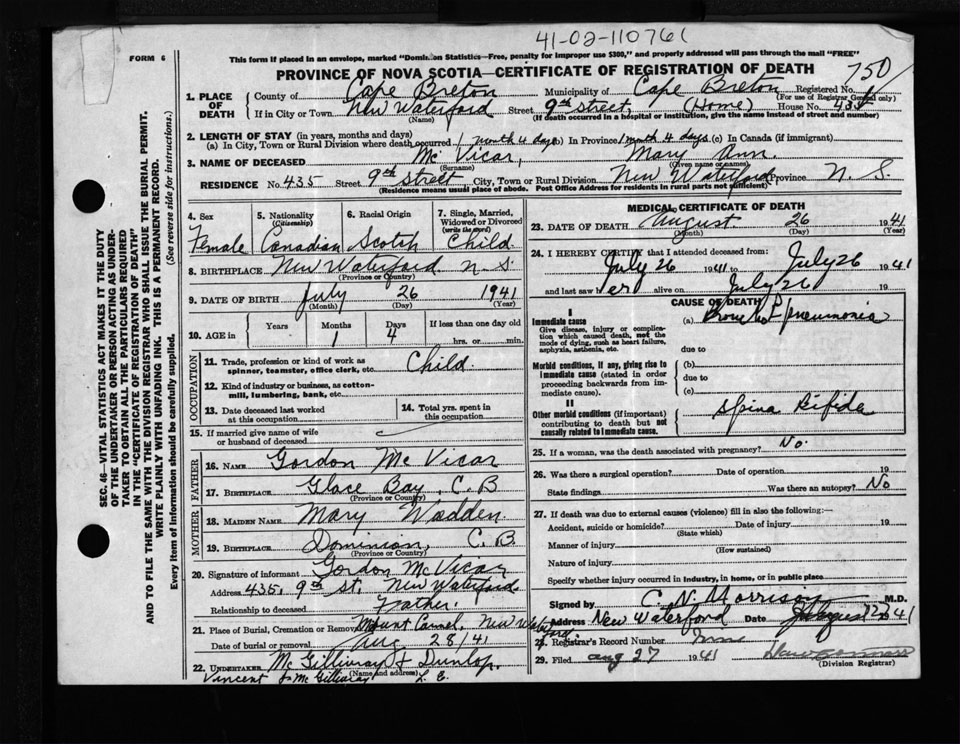 41-02-110761
FORM 6
This form if placed in an envelope, marked "Dominion Statistics—Free, penalty for improper use $300," and properly addressed will pass through the mail "FREE"
PROVINCE OF NOVA SCOTIA—CERTIFICATE OF REGISTRATION OF DEATH
750
1. PLACE OF DEATH County of Cape Breton Municipality of Cape Breton Registered No.
(For use of Registrar General only)
If in City or Town New Waterford Street 9th Street, (Home) House No. 435
(Name) (If death occurred in a hospital or institution, give the name instead of street and number)
2. LENGTH OF STAY (in years, months and days)
(a) In City, Town or Rural Division where death occurred 1 month 4 days (b) In Province 1 month 4 days (c) In Canada (if immigrant)
3. NAME OF DECEASED Mc Vicar, Mary Ann.
(Surname) (Given name or names)
RESIDENCE No. 435 Street 9th Street City, Town or Rural Division New Waterford Province N. S.
(Residence means usual place of abode. Post Office Address for residents in rural parts not sufficient)
4. Sex Female
5. Nationality (Citizenship) Canadian
6. Racial Origin Scotch
7. Single, Married, Widowed or Divorced (write the word) Child.
8. BIRTHPLACE New Waterford. N. S.
(Province or Country)
9. DATE OF BIRTH July 26 1941
(Month) (Day) (Year)
10. AGE in Years Months 1 Days 4 If less than one day old
hrs. or min.
OCCUPATION
11. Trade, profession or kind of work as spinner, teamster, office clerk, etc. Child.
12. Kind of industry or business, as cotton-mill, lumbering, bank, etc.
13. Date deceased last worked at this occupation
14. Total yrs. spent in this occupation
15. If married give name of wife or husband of deceased
FATHER
16. NAME Gordon Mc Vicar
17. BIRTHPLACE Glace Bay, C. B
(Province or Country)
MOTHER
18. MAIDEN NAME Mary Wadden.
19. BIRTHPLACE Dominion, C. B.
(Province or Country)
20. Signature of informant Gordon Mc Vicar
Address 435, 9th St, New Waterford.
Relationship to deceased Father.
21. Place of Burial, Cremation or Removal Mount Carmel, New Waterford.
Date of burial or removal Aug 28/41
22. UNDERTAKER Mc Gillivray & Dunlop
(Name and address)
Vincent J. Mc Gillivray L. E.
MEDICAL CERTIFICATE OF DEATH
23. DATE OF DEATH August. 26 1941
(Month) (Day) (Year)
24. I HEREBY CERTIFY that I attended deceased from:
July 26 1941 to July 26 1941
and last saw her alive on July 26
CAUSE OF DEATH
I
Immediate cause
Give disease, injury or complication which caused death, not the mode of dying, such as heart failure, asphyxia, asthenia, etc.
(a) Broncho pneumonia
due to
Morbid conditions, if any, giving rise to immediate cause (stated in order proceeding backwards from immediate cause).
(b)
due to
(c)
II
Other morbid conditions (if important) contributing to death but not causally related to immediate cause.
Spina Bifida
25. If a woman, was the death associated with pregnancy? No.
26. Was there a surgical operation? Date of operation 19
State findings Was there an autopsy? No
27. If death was due to external causes (violence) fill in also the following:—
Accident, suicide or homicide? Date of injury 19
(State which)
Manner of injury
(How sustained)
Nature of injury
Specify whether injury occurred in industry, in home, or in public place
Signed by C. N. Morrison M.D.
Address New Waterford Date 1941
28. Registrar's Record Number
29. Filed aug 27 1941
(Division Registrar)
SEC. 46—VITAL STATISTICS ACT MAKES IT THE DUTY
OF THE UNDERTAKER OR PERSON ACTING AS UNDER-
TAKER TO OBTAIN ALL THE PARTICULARS REQUIRED
IN THE "CERTIFICATE OF REGISTRATION OF DEATH"
AND TO FILE THE SAME WITH THE DIVISION REGISTRAR WHO SHALL ISSUE THE BURIAL PERMIT.
WRITE PLAINLY WITH UNFADING INK. THIS IS A PERMANENT RECORD.
Every item of information should be carefully supplied. (See reverse side for instructions.)